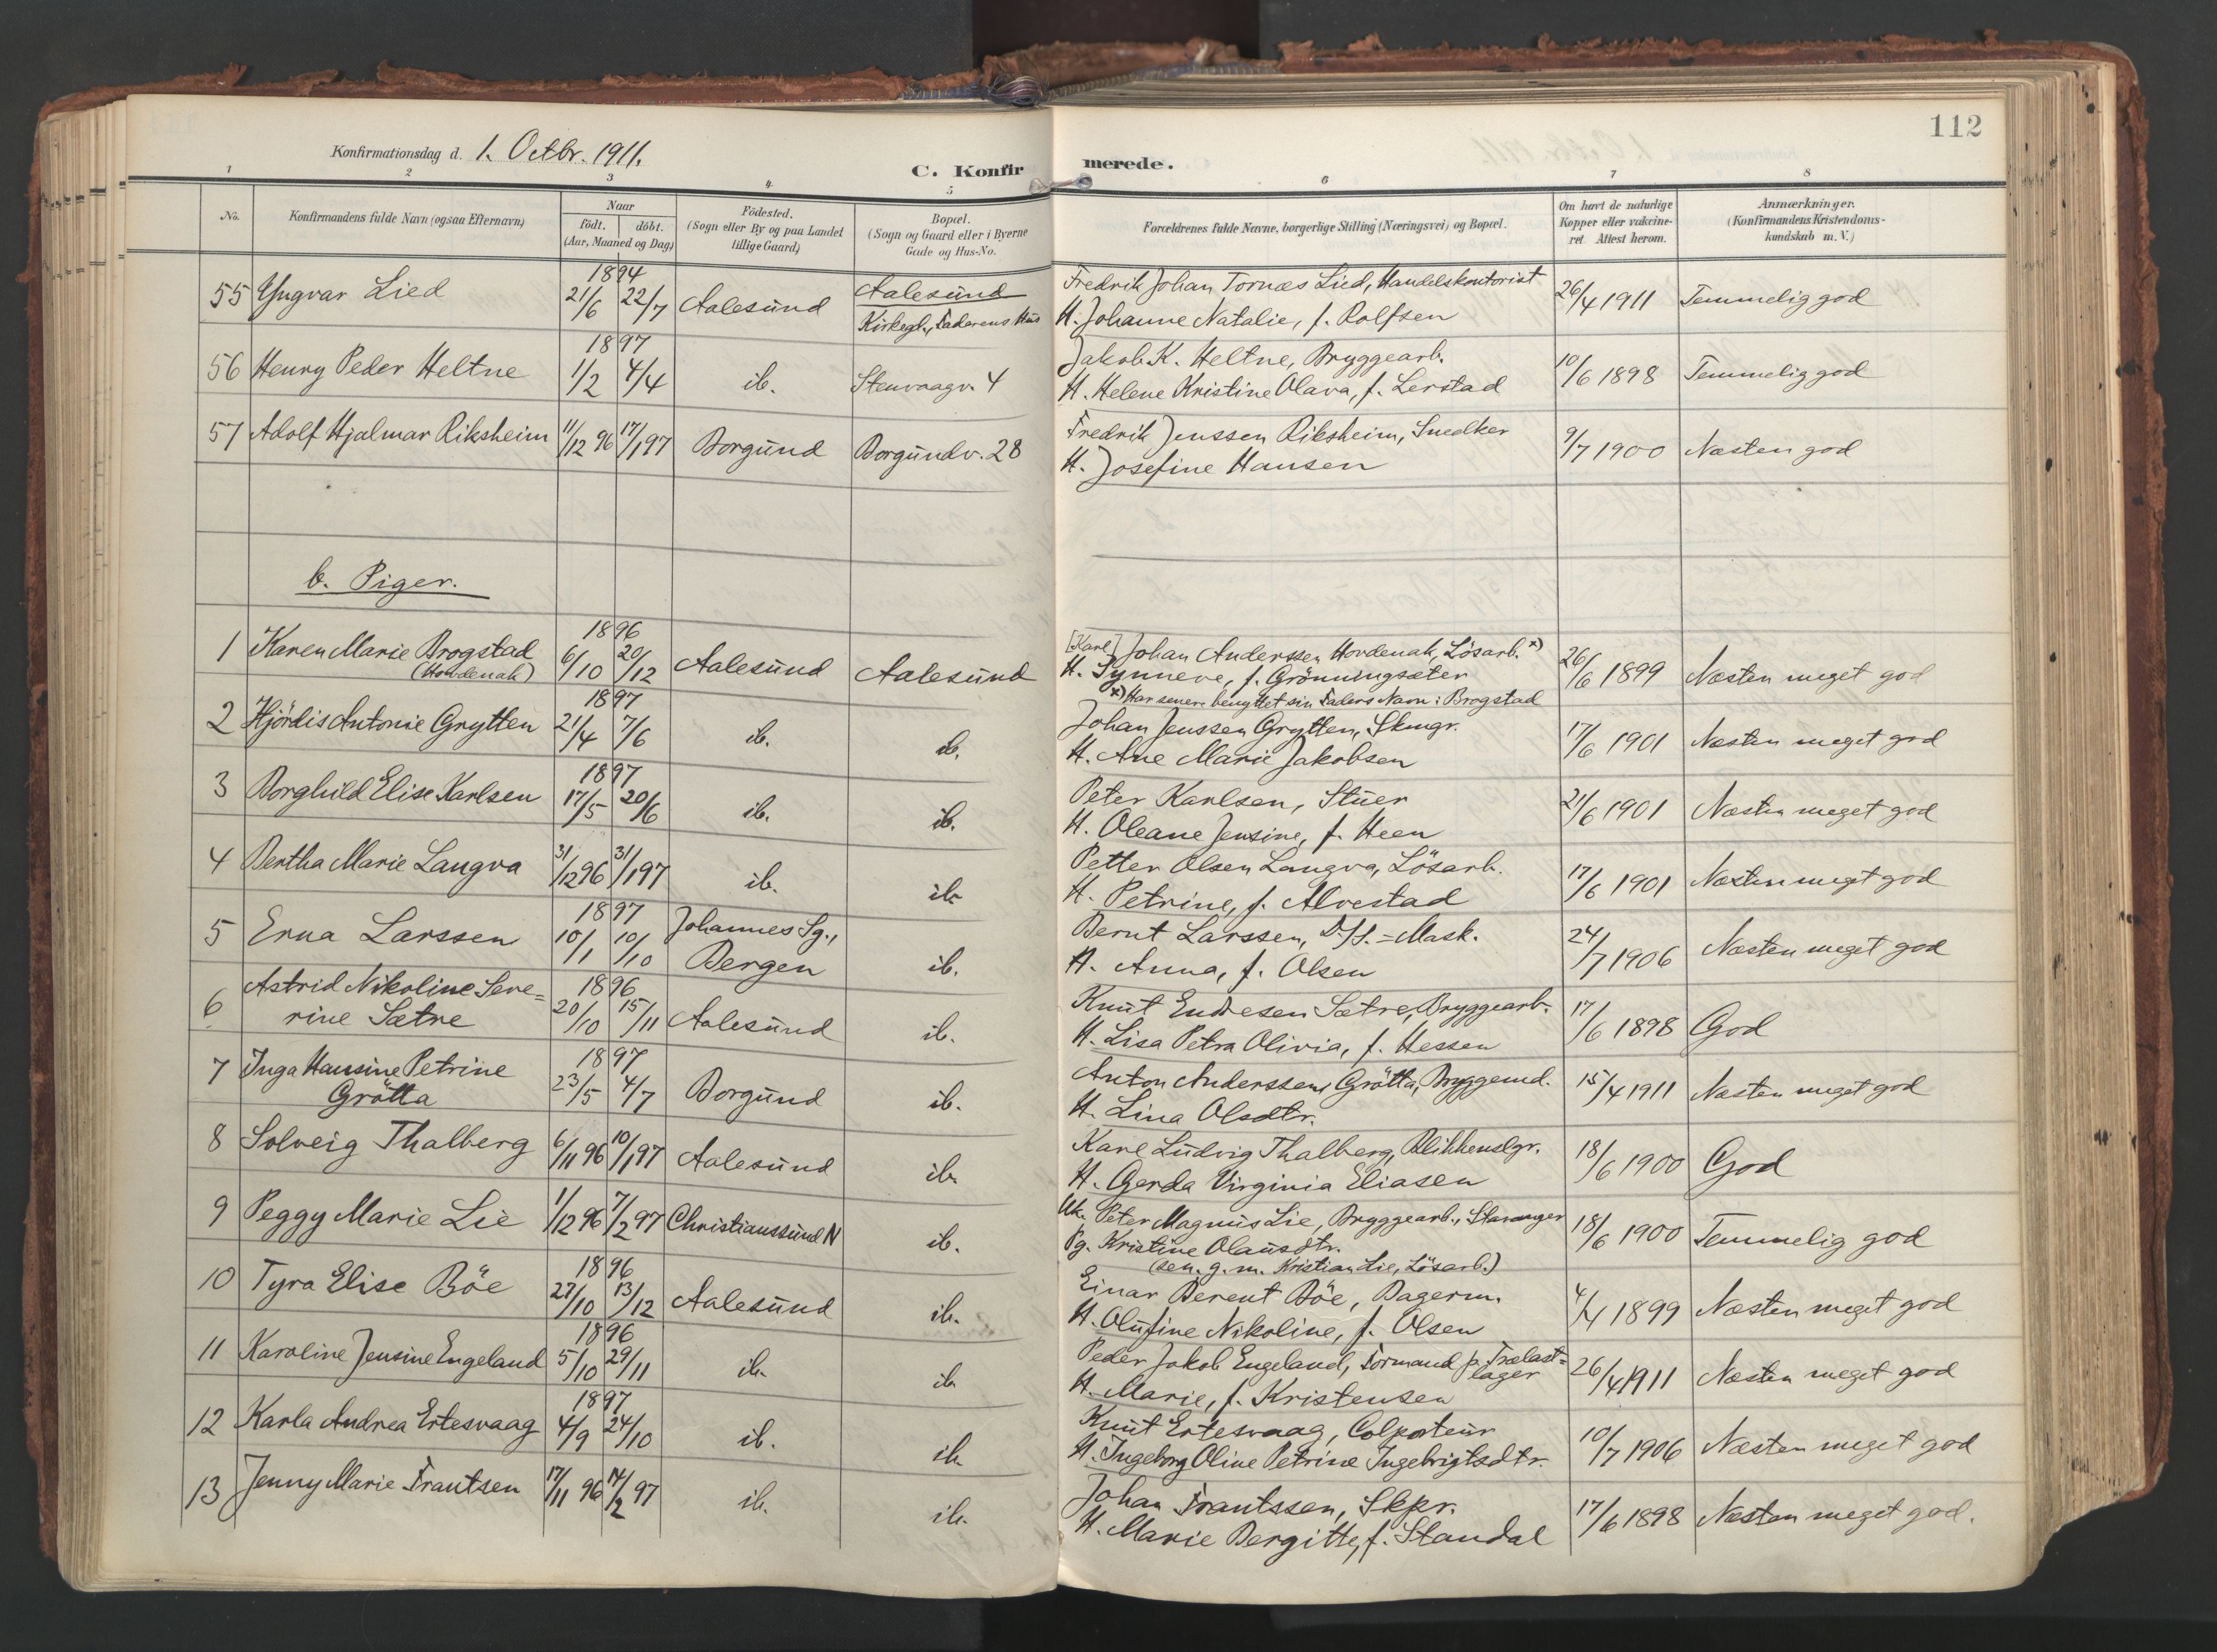 112
Konfirmationsdag d. 1. Octbr. 1911.
C. Konfirmerede.
1 2 3 4 5 6 7 8
No.
Konfirmandens fulde Navn (ogsaa Efternavn)
Naar
födt. döbt.
(Aar, Maaned og Dag)
Födested.
(Sogn eller By og paa Landet
tillige Gaard)
Bopæl.
(Sogn og Gaard eller i Byerne
Gade og Hus-No.
Forældrenes fulde Navne, borgerlige Stilling (Næringsvei) og Bopæl.
Om havt de naturlige
Kopper eller vakcine-
ret Attest herom.
Anmærkninger.
(Konfirmandens Kristendoms-
kundskab m. V.)
1894
55 Yngvar Lied 21/6 22/7 Aalesund Aalesund
Kirkegt, Faderens Hus
Fredrik Johan Tornæs Lied, Handelskontorist
H. Johanne Natalie, f. Rolfsen
26/4 1911 Temmelig god
1897
56 Henry Peder Heltne 1/2 4/4 ib. Stenvaagv. 4
Jakob K. Heltne, Bryggearb.
H. Helene Kristine Olava, f. Lerstad
10/6 1898 Temmelig god
57 Adolf Hjalmar Riksheim 11/12 96 17/1 97 Borgund Borgundv. 28
Fredrik Jenssen Riksheim, Snedker
H. Josefine Hansen
9/7 1900 Næsten god
b. Piger.
1896
1 Karen Marie Brogstad
(Hovdenak)
6/10 20/12 Aalesund Aalesund
[Karl] Johan Anderssen Hovdenak, Lösarb. x)
H. Synneve, f. Grönningsæter
x) Har senere benyttet sin Faders Navn: Brogstad
26/6 1899 Næsten meget god
1897
2 Hjördis Antonie Grytten 21/4 7/6 ib. ib.
Johan Jenssen Grytten, Skmgr.
H. Ane Marie Jakobsen
17/6 1901 Næsten meget god
1897
3 Borghild Elise Karlsen 17/5 20/6 ib. ib.
Peter Karlsen, Stuer
H. Oleane Jensine, f. Heen
21/6 1901 Næsten meget god
4 Bertha Marie Langva 31/12 96 31/1 97 ib. ib.
Petter Olsen Langva, Lösarb.
H. Petrine, f. Alvestad
17/6 1901 Næsten meget god
1897
5 Erna Larssen 10/1 10/10 Johannes Sg.,
Bergen
ib.
Bernt Larssen, D/S.=Mask.
H. Anna, f. Olsen
24/7 1906 Næsten meget god
1896
6 Astrid Nikoline Seve=
rine Sætre
20/10 15/11 Aalesund ib.
Knut Endresen Sætre, Bryggearb.
H. Lisa Petra Olivia, f. Hessen
17/6 1898 God
1897
7 Inga Hansine Petrine
Grötta
23/5 4/7 Borgund ib.
Anton Anderssen Grötta, Bryggemd.
H. Lina Olsdtr.
15/4 1911 Næsten meget god
8 Solveig Thalberg 6/11 96 10/1 97 Aalesund ib.
Karl Ludvig Thalberg, Blikkenslgr.
H. Gerda Virginia Eliasen
18/6 1900 God
9 Peggy Marie Lie 1/12 96 7/2 97 Christianssund N ib.
Uk. Peter Magnus Lie, Bryggearb., Stavanger
Pg. Kristine Olausdtr.
(sen. g. m. Kristian Lie, Lösarb.)
18/6 1900 Temmelig god
1896
10 Tyra Elise Böe 27/10 13/12 Aalesund ib.
Einar Berent Böe, Bagerm.
H. Olufine Nikoline, f. Olsen
4/4 1899 Næsten meget god
1896
11 Karoline Jensine Engeland 5/10 29/11 ib. ib.
Peder Jakob Engeland, Formand p. Trælast=
lager
H. Marie, f. Kristensen
26/4 1911 Næsten meget god
1897
12 Karla Andrea Ertesvaag 4/9 24/10 ib. ib.
Knut Ertesvaag, Colporteur
H. Ingeborg Oline Petrine Ingebrigtsdtr.
10/7 1906 Næsten meget god
13 Jenny Marie Frantsen 17/11 96 14/2 97 ib. ib.
Johan Frantssen, Skpr.
H. Marie Bergitte, f. Standal
17/6 1898 Næsten meget god.